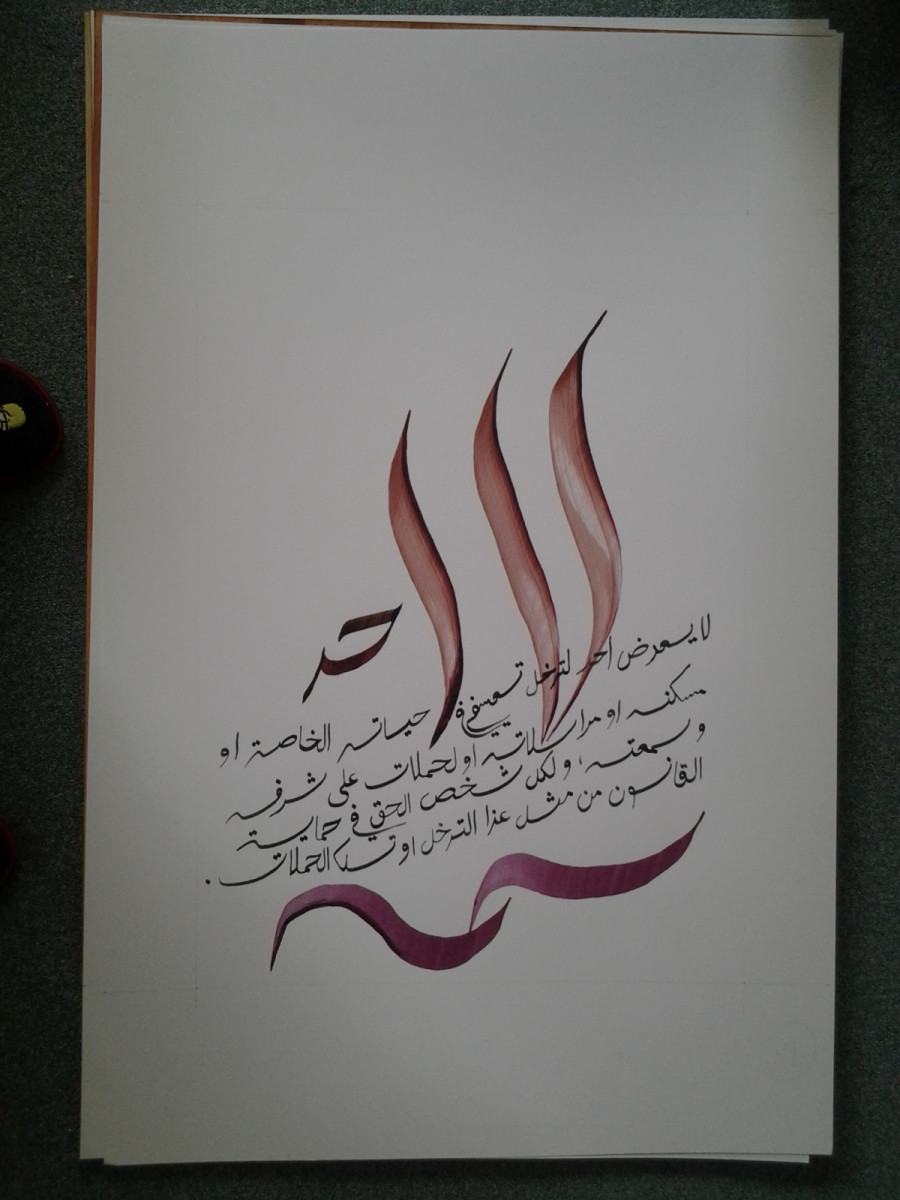 لا يعرض أحد لتدخل تعسفي في حياته الخاصة او
مسكنه او مراسلاته او لحملات على شرفه
وسمعته، ولكل شخص الحق في حماية
القانون من مثل هذا التدخل او تلك الحملات.